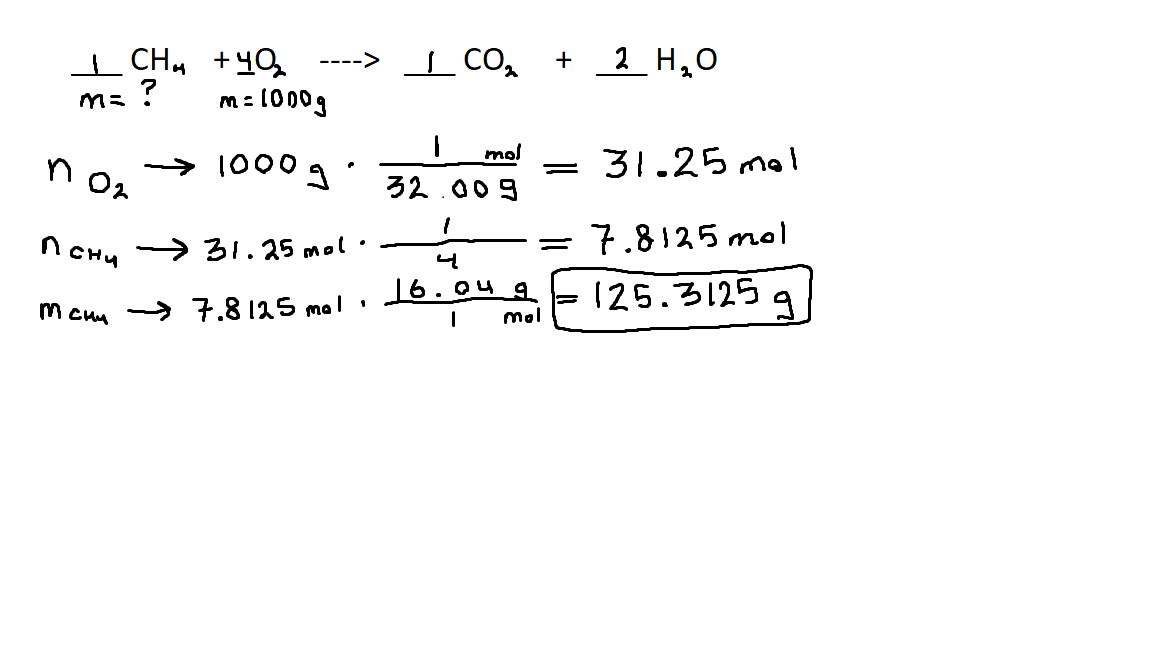 1 CH₄ + 4O₂ ----> 1 CO₂ + 2 H₂O
m = ? m = 1000g
n O₂ → 1000 g · 1 mol / 32.00 g = 31.25 mol
n CH₄ → 31.25 mol · 1 / 4 = 7.8125 mol
m CH₄ → 7.8125 mol · 16.04 g / 1 mol = 125.3125 g